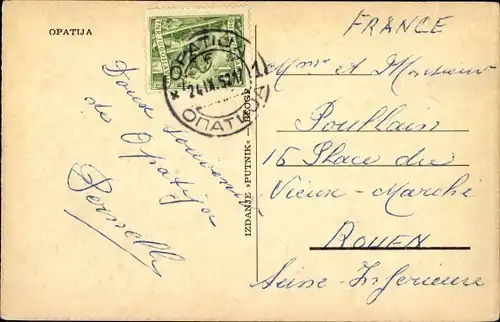 OPATIJA
FRANCE
OPATIJA 1
24.IX.52.17
ОПАТИЈА
Doux souvenir
de Opatija
IZDANJE »PUTNIK« BEOGR
Mme et Monsieur
Poullain
15 Place du
Vieux-Marché
ROUEN
Seine-Inférieure